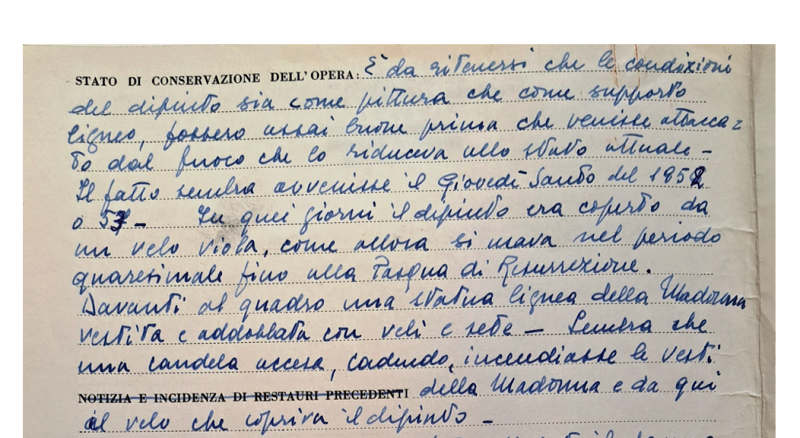 STATO DI CONSERVAZIONE DELL'OPERA: È da ritenersi che le condizioni
del dipinto sia come pittura che come supporto
ligneo, fossero assai buone prima che venisse attacca=
to dal fuoco che lo riduceva allo stato attuale -
Il fatto sembra avvenisse il Giovedì Santo del 1952
o 53 - In quei giorni il dipinto era coperto da
un velo viola, come allora si usava nel periodo
quaresimale fino alla Pasqua di Resurrezione.
Davanti al quadro una statua lignea della Madonna
vestita e addobbata con veli e sete - Sembra che
una candela accesa, cadendo, incendiasse le vesti
NOTIZIA E INCIDENZA DI RESTAURI PRECEDENTI della Madonna e da qui
al velo che copriva il dipinto -